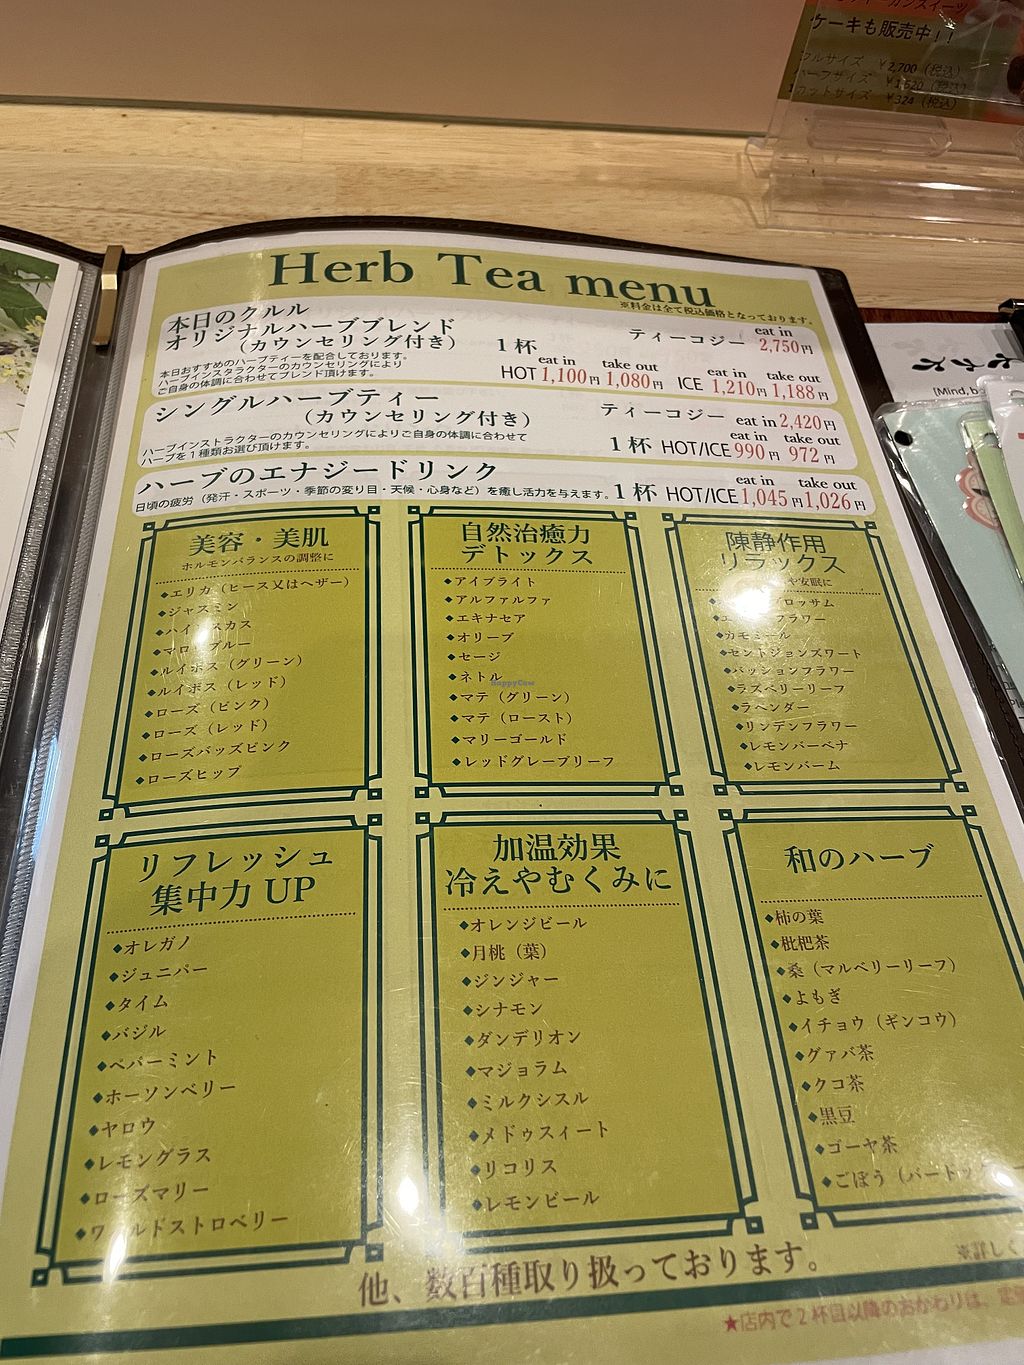 ケーキも販売中！！
フルサイズ ￥2,700（税込）
ハーフサイズ ￥1,620（税込）
カットサイズ ￥324（税込）
Herb Tea menu
※料金は全て税込価格となっております。
本日のクルル
オリジナルハーブブレンド
（カウンセリング付き）
本日おすすめのハーブティーを配合しております。
ハーブインスタラクターのカウンセリングにより
ご自身の体調に合わせてブレンド頂けます。
ティーコジー eat in 2,750円
1杯
HOT eat in 1,100円 take out 1,080円 ICE eat in 1,210円 take out 1,188円
シングルハーブティー
（カウンセリング付き）
ハーブインストラクターのカウンセリングによりご自身の体調に合わせて
ハーブを1種類お選び頂けます。
ティーコジー eat in 2,420円
1杯 HOT/ICE eat in 990円 take out 972円
ハーブのエナジードリンク
日頃の疲労（発汗・スポーツ・季節の変り目・天候・心身など）を癒し活力を与えます。
1杯 HOT/ICE eat in 1,045円 take out 1,026円
美容・美肌
ホルモンバランスの調整に
◆エリカ（ヒース又はヘザー）
◆ジャスミン
◆ハイ スカス
◆マロ ブルー
◆ルイボス（グリーン）
◆ルイボス（レッド）
◆ローズ（ピンク）
◆ローズ（レッド）
◆ローズバッズピンク
◆ローズヒップ
自然治癒力
デトックス
◆アイブライト
◆アルファルファ
◆エキナセア
◆オリーブ
◆セージ
◆ネトル
◆マテ（グリーン）
◆マテ（ロースト）
◆マリーゴールド
◆レッドグレープリーフ
HappyCow
陳静作用
リラックス
や安眠に
ロッサム
フラワー
◆カモミール
◆セントジョンズワート
◆パッションフラワー
◆ラズベリーリーフ
◆ラベンダー
◆リンデンフラワー
◆レモンバーベナ
◆レモンバーム
リフレッシュ
集中力 UP
◆オレガノ
◆ジュニパー
◆タイム
◆バジル
◆ペパーミント
◆ホーソンベリー
◆ヤロウ
◆レモングラス
◆ローズマリー
◆ワイルドストロベリー
加温効果
冷えやむくみに
◆オレンジピール
◆月桃（葉）
◆ジンジャー
◆シナモン
◆ダンデリオン
◆マジョラム
◆ミルクシスル
◆メドゥスィート
◆リコリス
◆レモンピール
和のハーブ
◆柿の葉
◆枇杷茶
◆桑（マルベリーリーフ）
◆よもぎ
◆イチョウ（ギンコウ）
◆グァバ茶
◆クコ茶
◆黒豆
◆ゴーヤ茶
◆ごぼう（バードック
他、数百種取り扱っております。
※詳しく
★店内で2杯目以降のおかわりは、